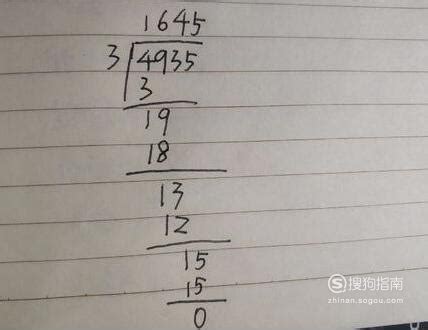 1645
3 4935
3
19
18
13
12
15
15
0
搜狗指南
zhinan.sogou.com